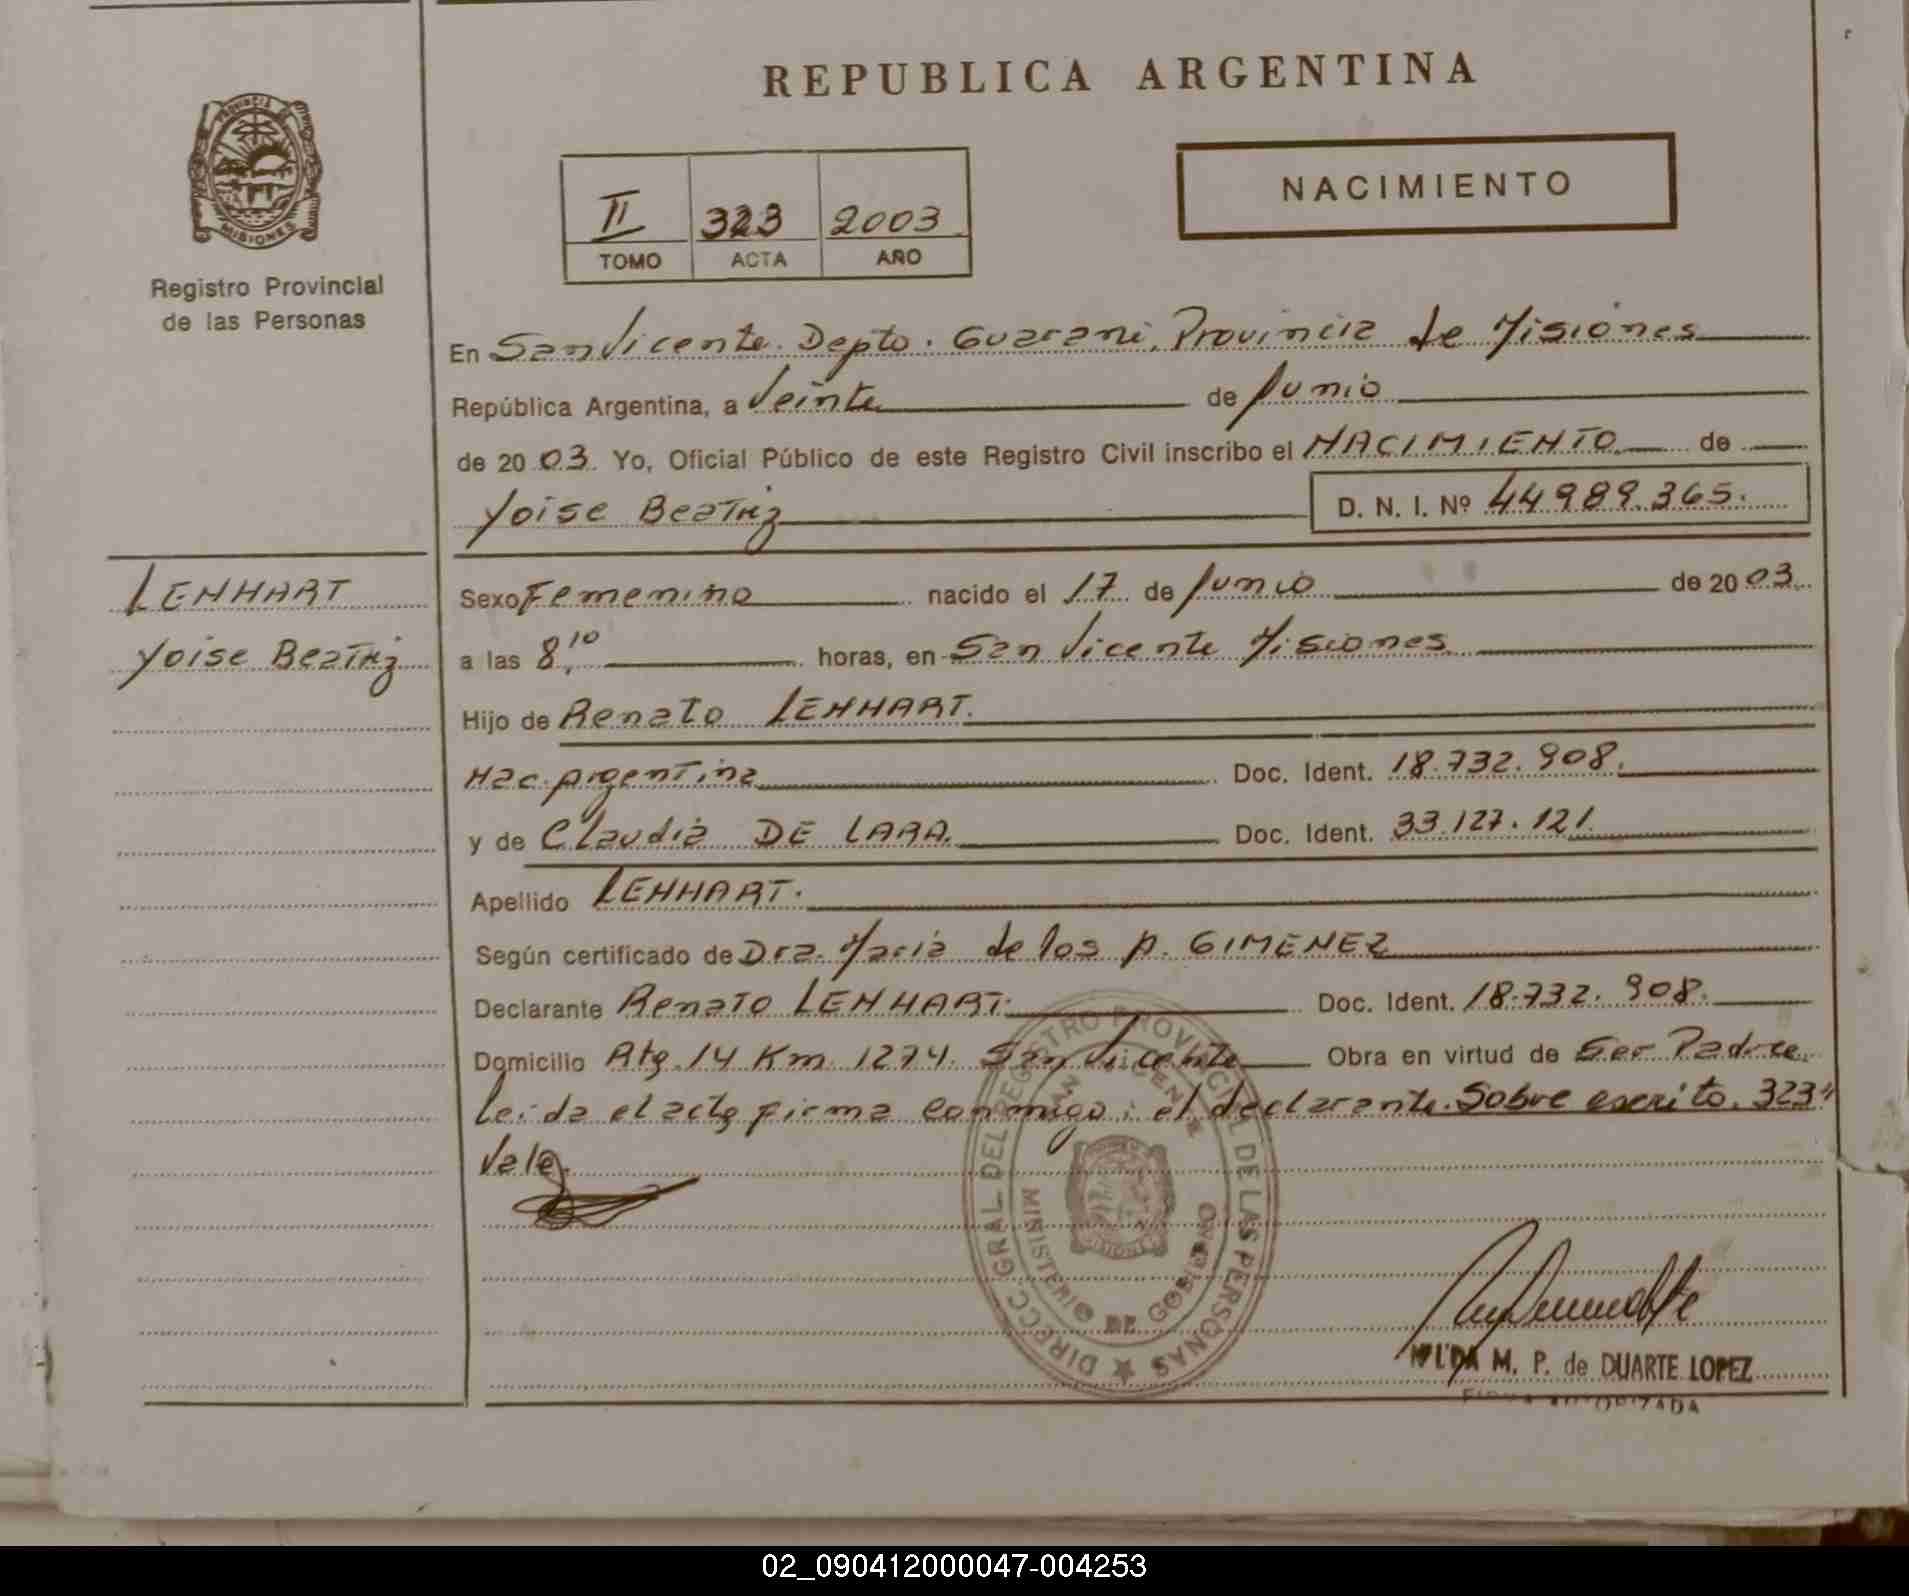 REPUBLICA ARGENTINA
PROVINCIA DE MISIONES
Registro Provincial
de las Personas
II 323 2003
TOMO ACTA AÑO
NACIMIENTO
En San Vicente. Depto. Guarani, Provincia de Misiones
República Argentina, a Veinte de Junio
de 20 03. Yo, Oficial Público de este Registro Civil inscribo el NACIMIENTO de
Yoise Beatriz D. N. I. Nº 44989.365.
LENHART
Yoise Beatriz
Sexo Femenino nacido el 17 de Junio de 20 03
a las 8,10 horas, en San Vicente Misiones
Hijo de Renato LENHART.
Nac. Argentina Doc. Ident. 18.732.908.
y de Claudia DE LARA. Doc. Ident. 33.127.121.
Apellido LENHART.
Según certificado de Dra. Maria de los A. GIMENEZ
Declarante Renato LENHART. Doc. Ident. 18.732.908.
Domicilio Rta. 14 Km 1274. San Vicente Obra en virtud de Ser Padre.
Leida el acta firma conmigo: el declarante. Sobre escrito. 323"
Vale.
DIRECC. GRAL. DEL REGISTRO PROVINCIAL DE LAS PERSONAS
SAN VICENTE
MINISTERIO DE GOBIERNO
MISIONES
M. P. de DUARTE LOPEZ
FIRMA AUTORIZADA
02_090412000047-004253